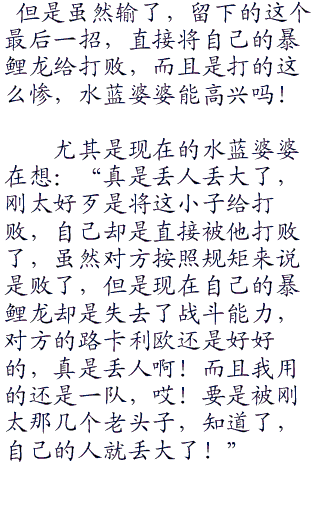 但是虽然输了，留下的这个
最后一招，直接将自己的暴
鲤龙给打败，而且是打的这
么惨，水蓝婆婆能高兴吗！
尤其是现在的水蓝婆婆
在想：“真是丢人丢大了，
刚太好歹是将这小子给打
败，自己却是直接被他打败
了，虽然对方按照规矩来说
是败了，但是现在自己的暴
鲤龙却是失去了战斗能力，
对方的路卡利欧还是好好
的，真是丢人啊！而且我用
的还是一队，哎！要是被刚
太那几个老头子，知道了，
自己的人就丢大了！”